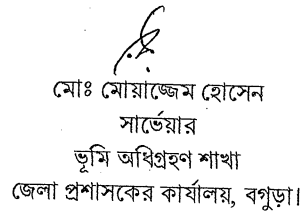 মোঃ মোয়াজ্জেম হোসেন
সার্ভেয়ার
ভূমি অধিগ্রহণ শাখা
জেলা প্রশাসকের কার্যালয়, বগুড়া।